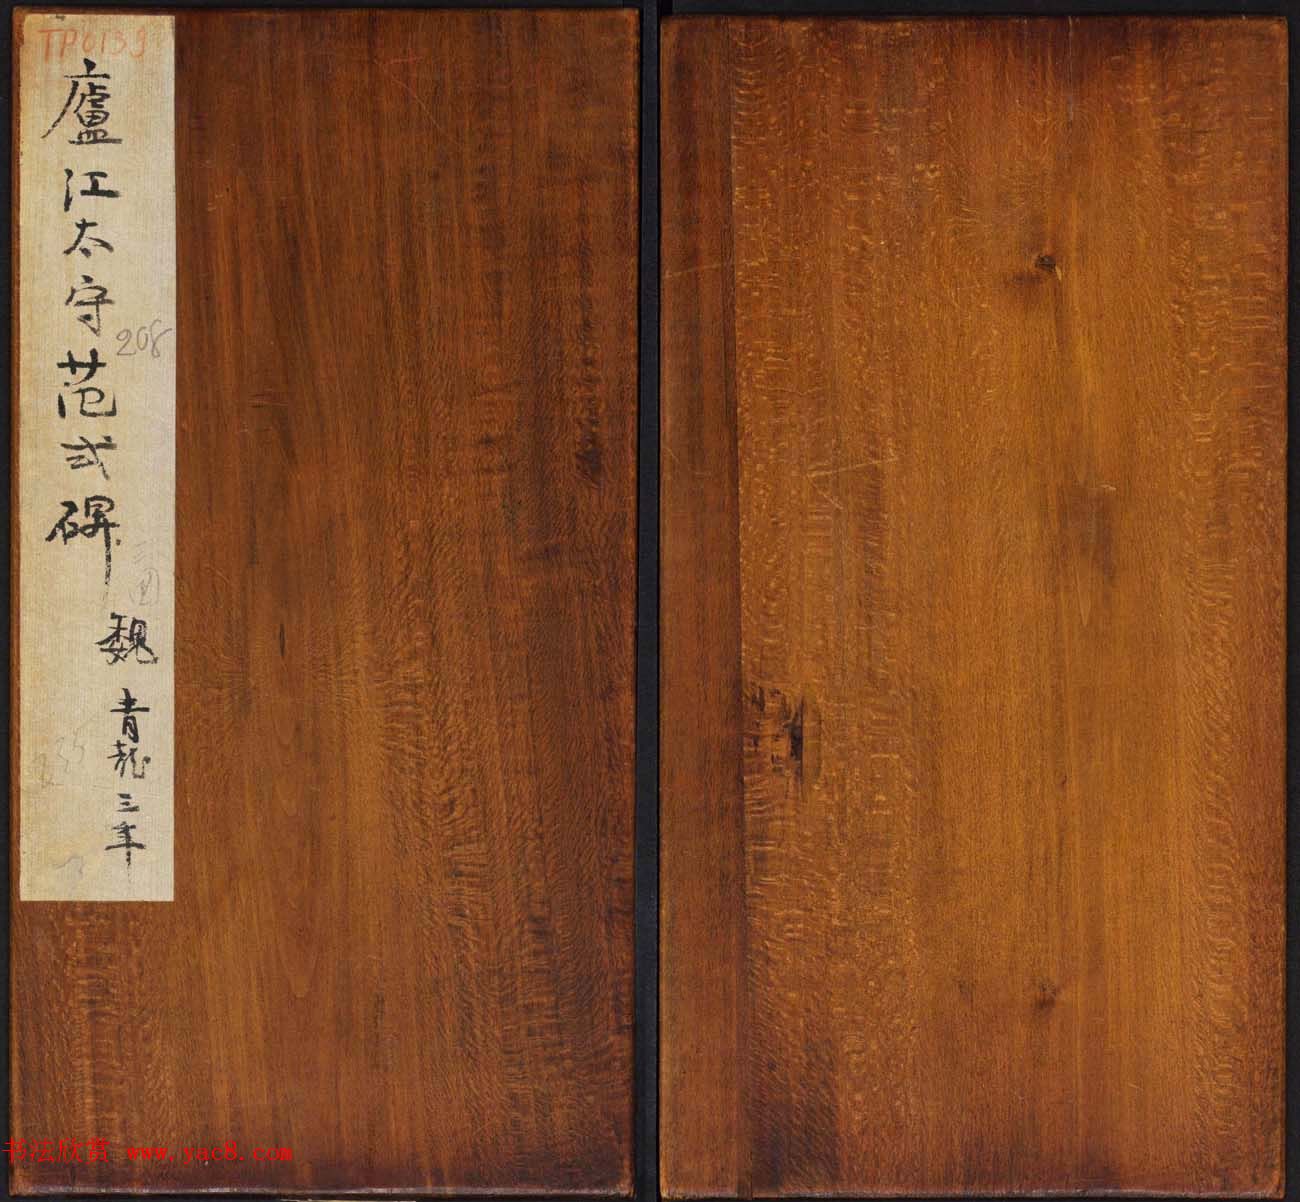 TP0139
廬江太守范式碑
208
魏 青龍三年
书法欣赏 www.yac8.com